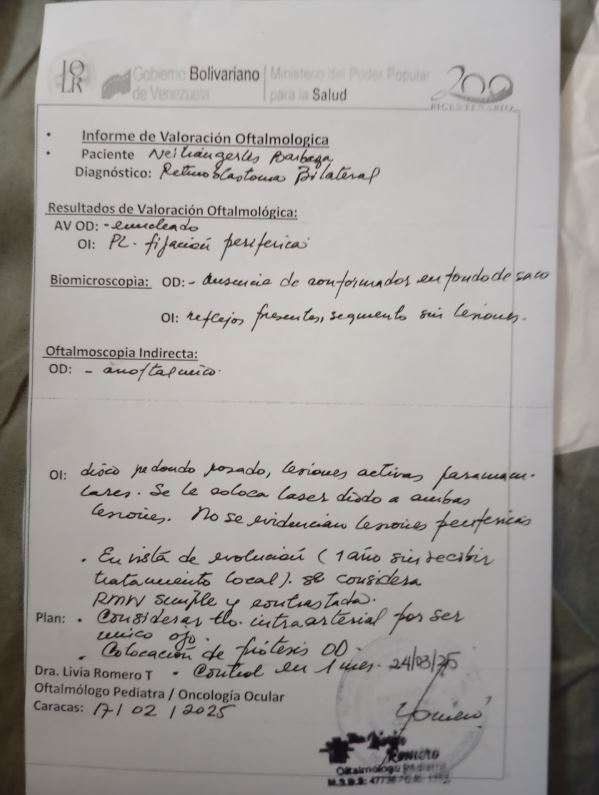 IO
LR
Gobierno Bolivariano de Venezuela
Ministerio del Poder Popular para la Salud
200
BICENTENARIO
• Informe de Valoración Oftalmologica
• Paciente Barboza
Diagnóstico: Retinoblastoma Bilateral
Resultados de Valoración Oftalmológica:
AV OD: - enucleado
OI: PL. fijación periferica
Biomicroscopia: OD: - Ausencia de conformador en fondo de saco
OI: reflejos presentes, segmento sin lesiones.
Oftalmoscopia Indirecta:
OD: - anoftalmico.
OI: disco redondo rosado, lesiones activas paramacu-
lares. Se le coloca laser diodo a ambas
lesiones. No se evidencian lesiones perifericas
• En vista de evolución (1 año sin recibir
tratamiento local). se considera
RMN simple y contrastada.
Plan: • Considerar tto. intraarterial por ser
unico ojo.
• Colocación de protesis OD.
• Control en 1 mes. 24/03/25
Dra. Livia Romero T
Oftalmólogo Pediatra / Oncología Ocular
Caracas: 17/02/2025
Romero
Oftalmólogo Pediatra
M.S.D.S: 47736